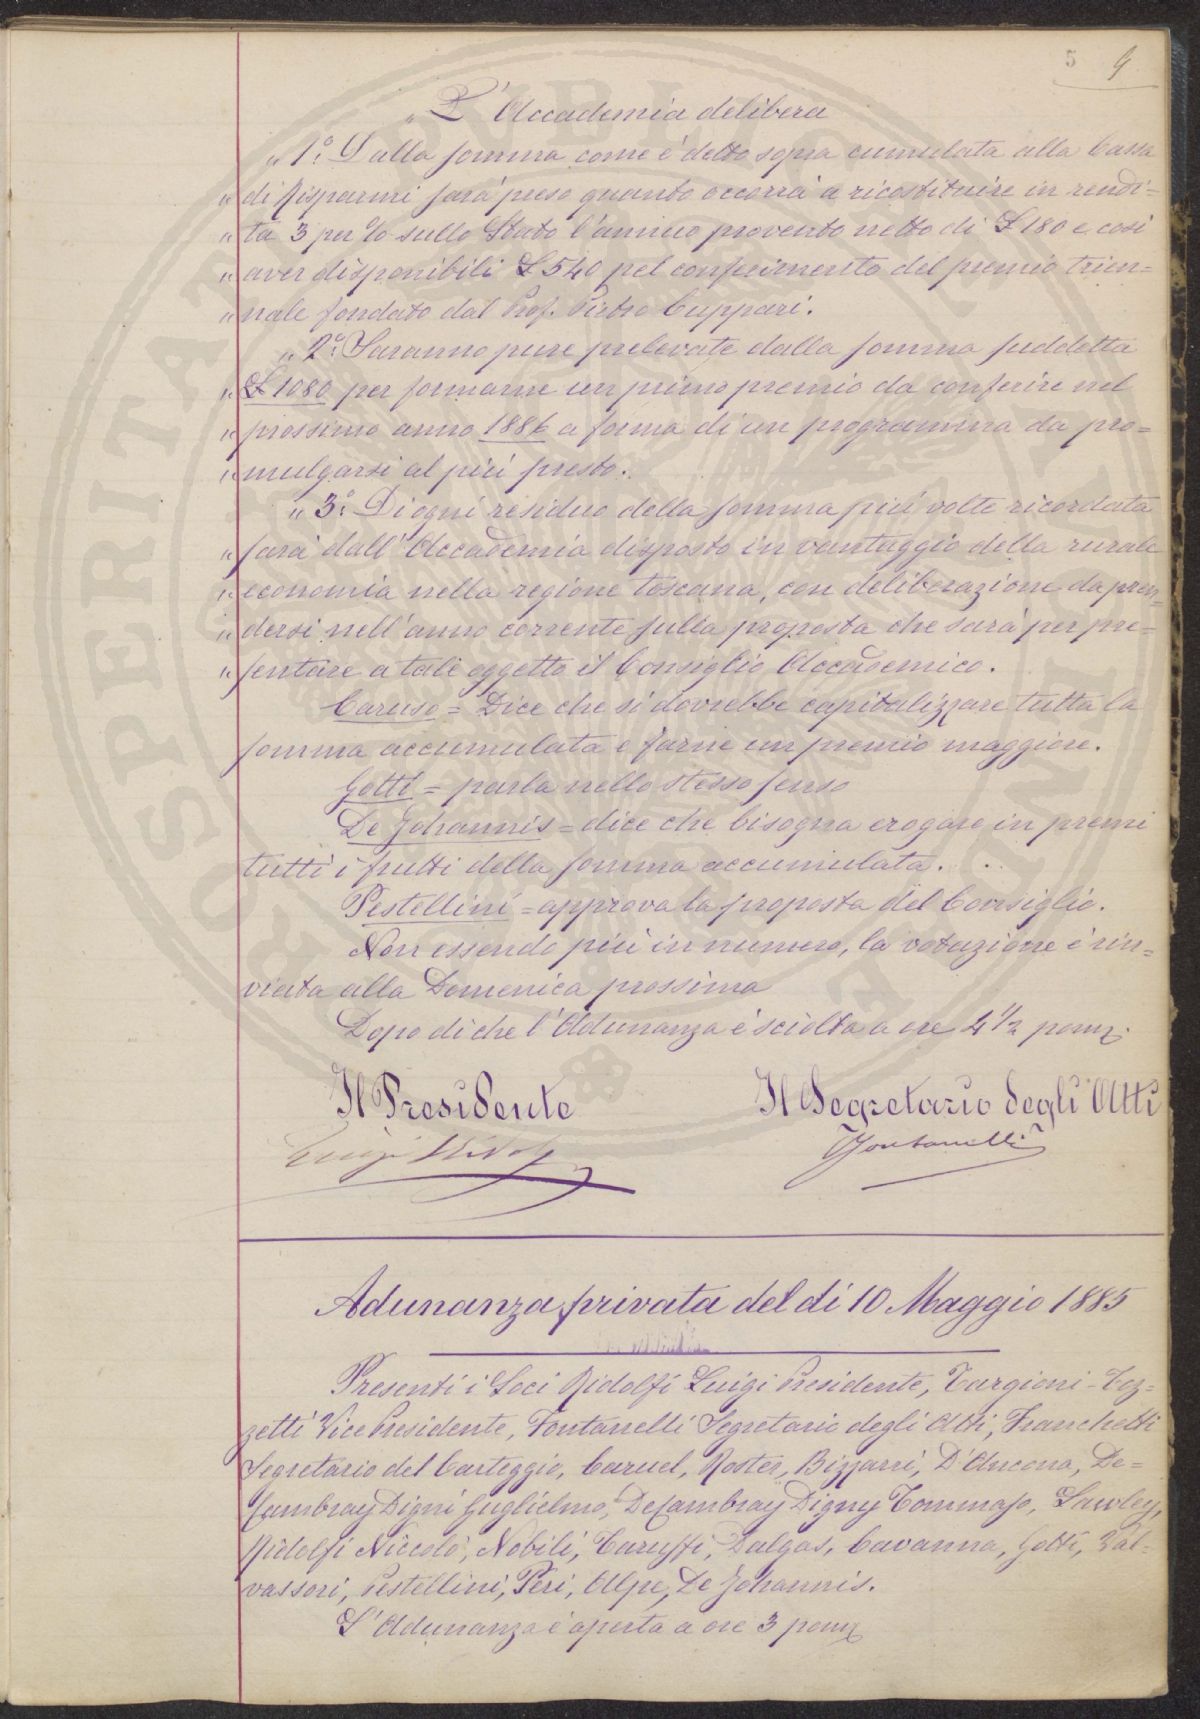 5 9
„ L'Accademia delibera
„ 1.° Dalla somma come è detto sopra cumulata alla Cassa
„ di Risparmi sarà preso quanto occorra a ricostituire in rendi=
„ ta 3 per % sullo Stato l'annuo provento netto di £ 180 e così
„ aver disponibili £ 540 pel conferimento del premio trien=
„ nale fondato dal Prof. Pietro Cuppari.
„ 2.° Saranno pure prelevate dalla somma suddetta
„ £ 1080 per formarne un primo premio da conferire nel
„ prossimo anno 1886 a forma di un programma da pro=
„ mulgarsi al più presto.
„ 3.° Di ogni residuo della somma più volte ricordata
„ sarà dall'Accademia disposto in vantaggio della rurale
„ economia nella regione toscana, con deliberazione da pren=
„ dersi nell'anno corrente sulla proposta che sarà per pre=
„ sentare a tale oggetto il Consiglio Accademico.
Caruso = Dice che si dovrebbe capitalizzare tutta la
somma accumulata e farne un premio maggiore.
Gotti = parla nello stesso senso
De Johannis = dice che bisogna erogare in premi
tutti i frutti della somma accumulata.
Pestellini = approva la proposta del Consiglio.
Non essendo più in numero, la votazione è rin=
viata alla Domenica prossima
Dopo di che l'Adunanza è sciolta a ore 4 1/2 pom.
Il Presidente Il Segretario degli Atti
Luigi Ridolfi Fontanelli
Adunanza privata del dì 10 Maggio 1885
Presenti i Soci Ridolfi Luigi Presidente, Targioni-Toz=
zetti Vice Presidente, Fontanelli Segretario degli Atti, Franchetti
Segretario del Carteggio, Caruel, Roster, Bizzarri, D'Ancona, De=
Cambray Digni Guglielmo, De Cambray Digny Tommaso, Lawley,
Ridolfi Niccolò, Nobili, Taruffi, Dalgas, Cavanna, Gotti, Val=
vassori, Pestellini, Peri, Alpe, De Johannis.
L'Adunanza è aperta a ore 3 pom.
SOSPERITATI PUBLICAE AUGENDAE